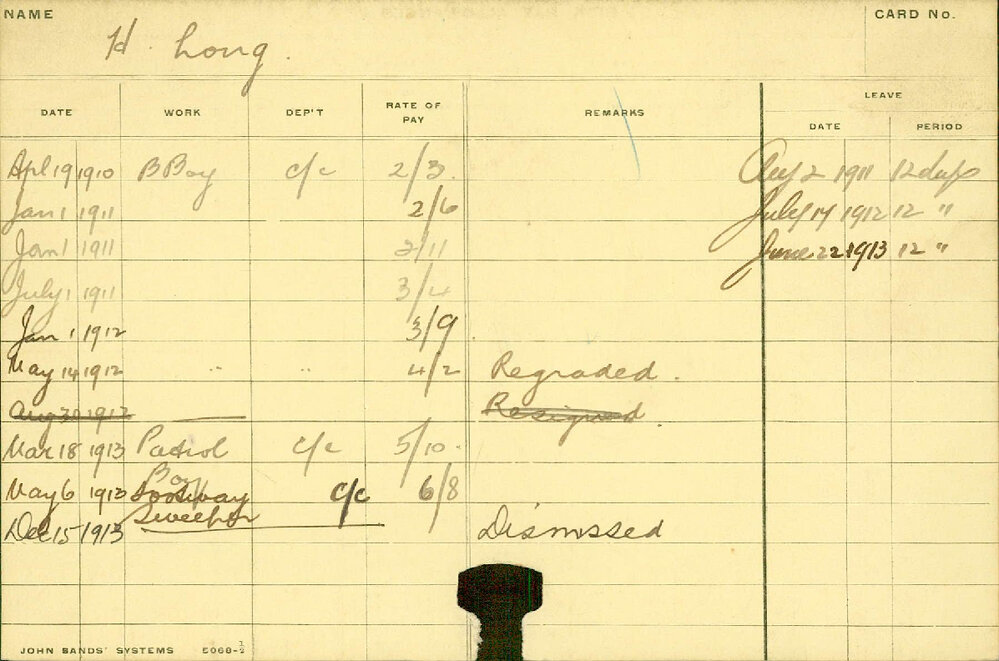 NAME
CARD No.
H. Long.
LEAVE
DATE WORK DEP'T RATE OF PAY REMARKS DATE PERIOD
Apl 19 1910 B Boy c/c 2/3. Aug 2 1911 12 days
Jan 1 1911 2/6 July 14 1912 12 "
Jan 1 1911 2/11 June 22 1913 12 "
July 1 1911 3/4
Jan 1 1912 3/9
May 14 1912 " " 4/2 Regraded.
Aug 30 1912 Resigned
Mar 18 1913 Patrol c/c 5/10.
Boy
May 6 1913 Footway c/c 6/8
Sweeper
Dec 15 1913 Dismssed
JOHN SANDS' SYSTEMS 5068-½